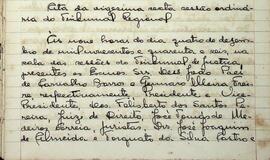 Ata da vigesima sexta sessão ordiná-
ria do Tribunal Regional
Ás nove horas do dia quatro de dezem-
bro de mil novecentos e quarenta e seis, na
sala das sessões do Tribunal de Justiça,
presentes os Exmos. Srs. Des. João Paes
de Carvalho Barros e Genaro Meira Freire
re, respectivamente, Presidente e Vice-
Presidente, Des. Felisberto dos Santos Pe-
reira, Juiz de Direito, José Tomás de Me-
deiros Correia, juristas Drs. José Joaquim
de Almeida e Torquato da Silva Castro e